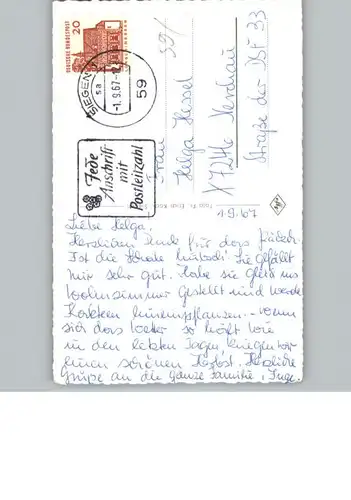 DEUTSCHE BUNDESPOST
20
SIEGEN
59
-1.9.67-
Jede
Anschrift
mit
Postleitzahl
Frau
Helga Hessel
X 7246 Nerchau
Straße der DSF 33
Liebe Helga,
Herzlichen Dank für das
Ist die Schale hübsch! Sie gefällt
mir sehr gut. Habe sie gleich ins
Wohnzimmer gestellt und werde
Kakteen hineinpflanzen. Wenn
sich das Wetter so hält wie
in den letzten Tagen, kriegen wir
einen schönen Herbst. Herzliche
Grüße an die ganze Familie, Inge.